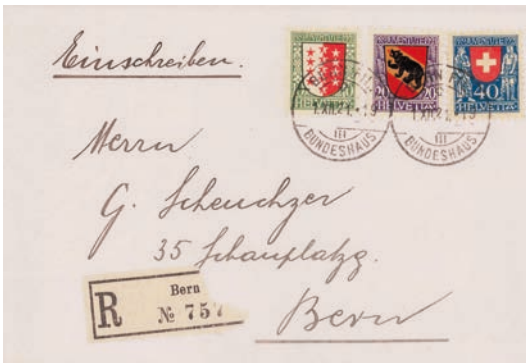 Einschreiben.
HELVETIA
20 20
HELVETIA
40
HELVETIA
1.XII.21
III
BUNDESHAUS
1.XII.21
III
BUNDESHAUS
Herrn
G. Scheuchzer
35 Schauplatzg.
Bern
R Bern
№ 757